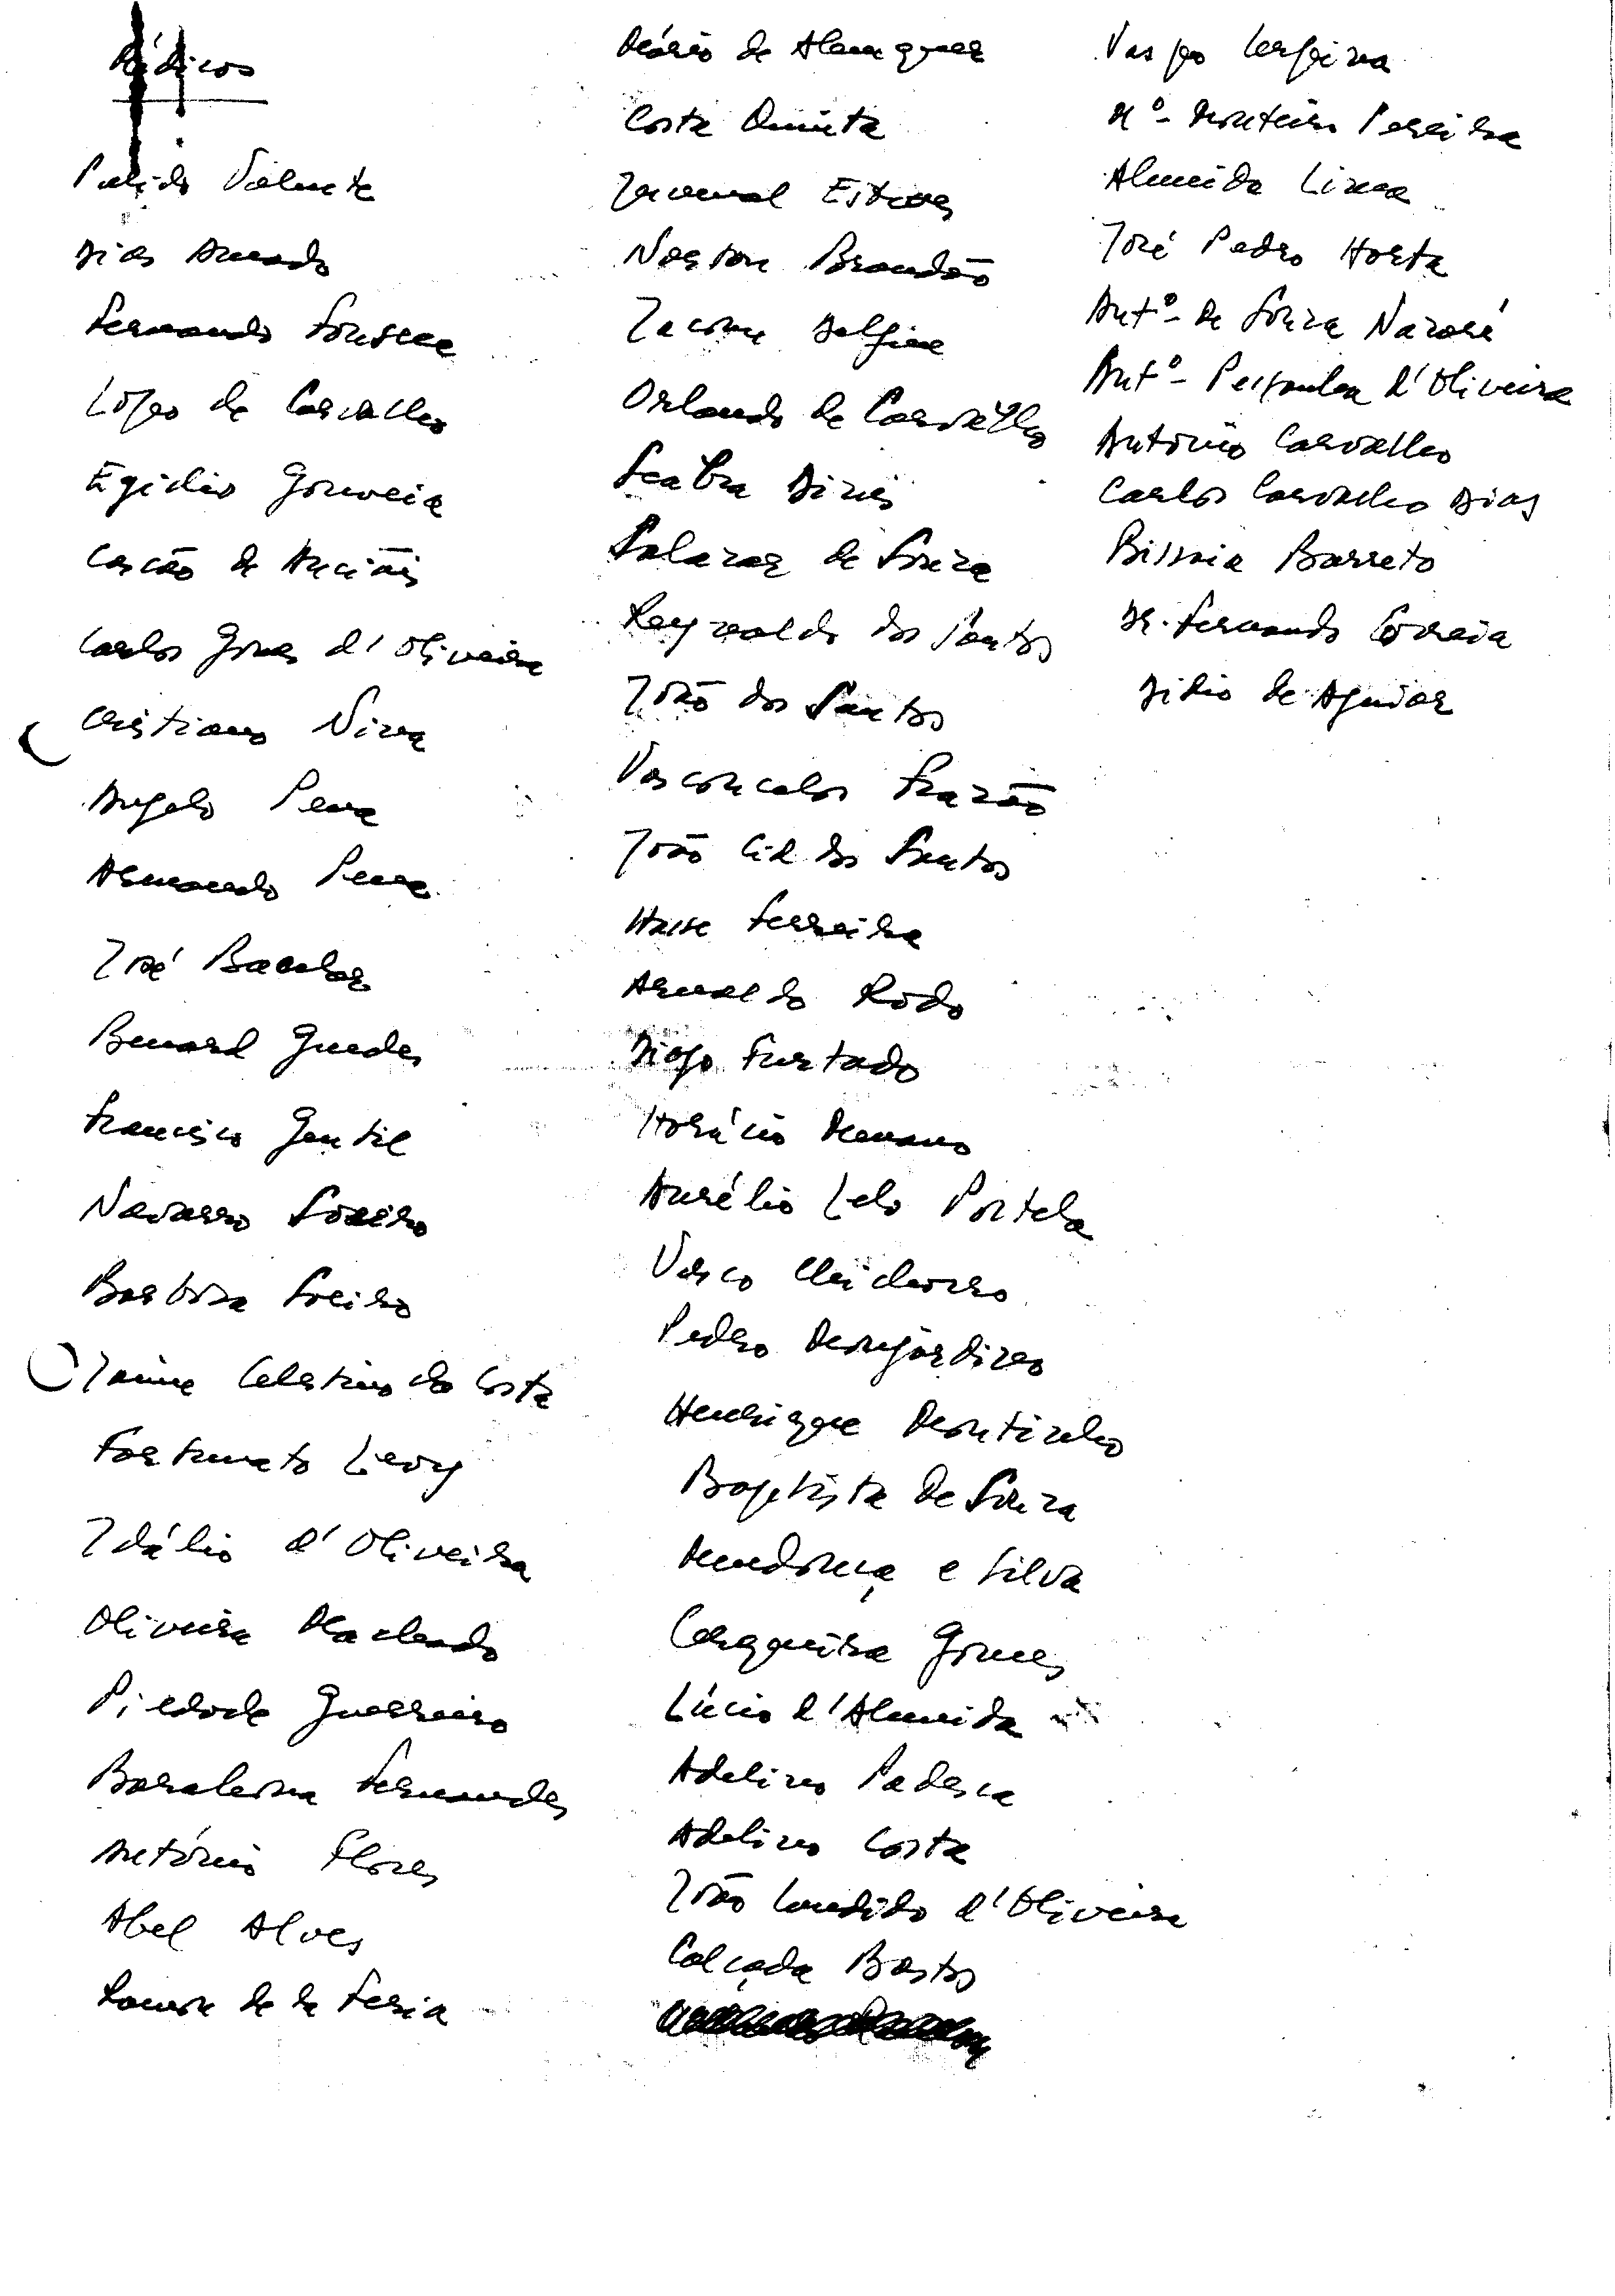 Médicos
Pulido Valente
Dias Amado
Fernando Fonseca
Lopo de Carvalho
Egídio Gouveia
Cascão de Anciães
Carlos Gomes d'Oliveira
Cristiano Nina
Angelo Pena
Armando Pena
José Bacalar
Benard Guedes
Francisco Gentil
Navarro Soeiro
Barbosa Soeiro
Jaime Celestino da Costa
Fortunato Levy
Idálio d'Oliveira
Oliveira Machado
Piedade Guerreiro
Barahona Fernandes
António Flores
Abel Alves
de la Feria
Mário de Alemquer
Costa Quinta
Juvenal Esteves
Norton Brandão
Jacome Delfim
Orlando de Carvalho
Seabra Dinis
Salazar de Souza
Reynaldo dos Santos
João dos Santos
Vasconcelos Frazão
João Cid dos Santos
Hasse Ferreira
Arnaldo Rodo
Diogo Furtado
Horácio Menano
Aurélio Lelo Portela
Vasco Chichorro
Pedro Monjardino
Henrique Moutinho
Baptista de Souza
Mendonça e Silva
Cerqueira Gomes
Lúcio d'Almeida
Adelino Padesca
Adelino Costa
João Candido d'Oliveira
Calçada Bastos
Cerqueira
Mº- Monteiro Pereira
Almeida Lima
José Pedro Horta
Antº- de Souza Nazaré
Antº- d'Oliveira
António Carvalho
Carlos Carvalho Dias
Bissaia Barreto
Dr. Fernando Correia
Dídio de Aguiar